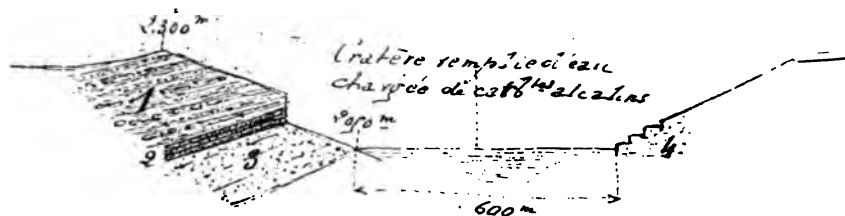 2.300 m
Cratère remplie d'eau
chargée de carb^tes alcalins
2090 m
1
2
3
4
600 m